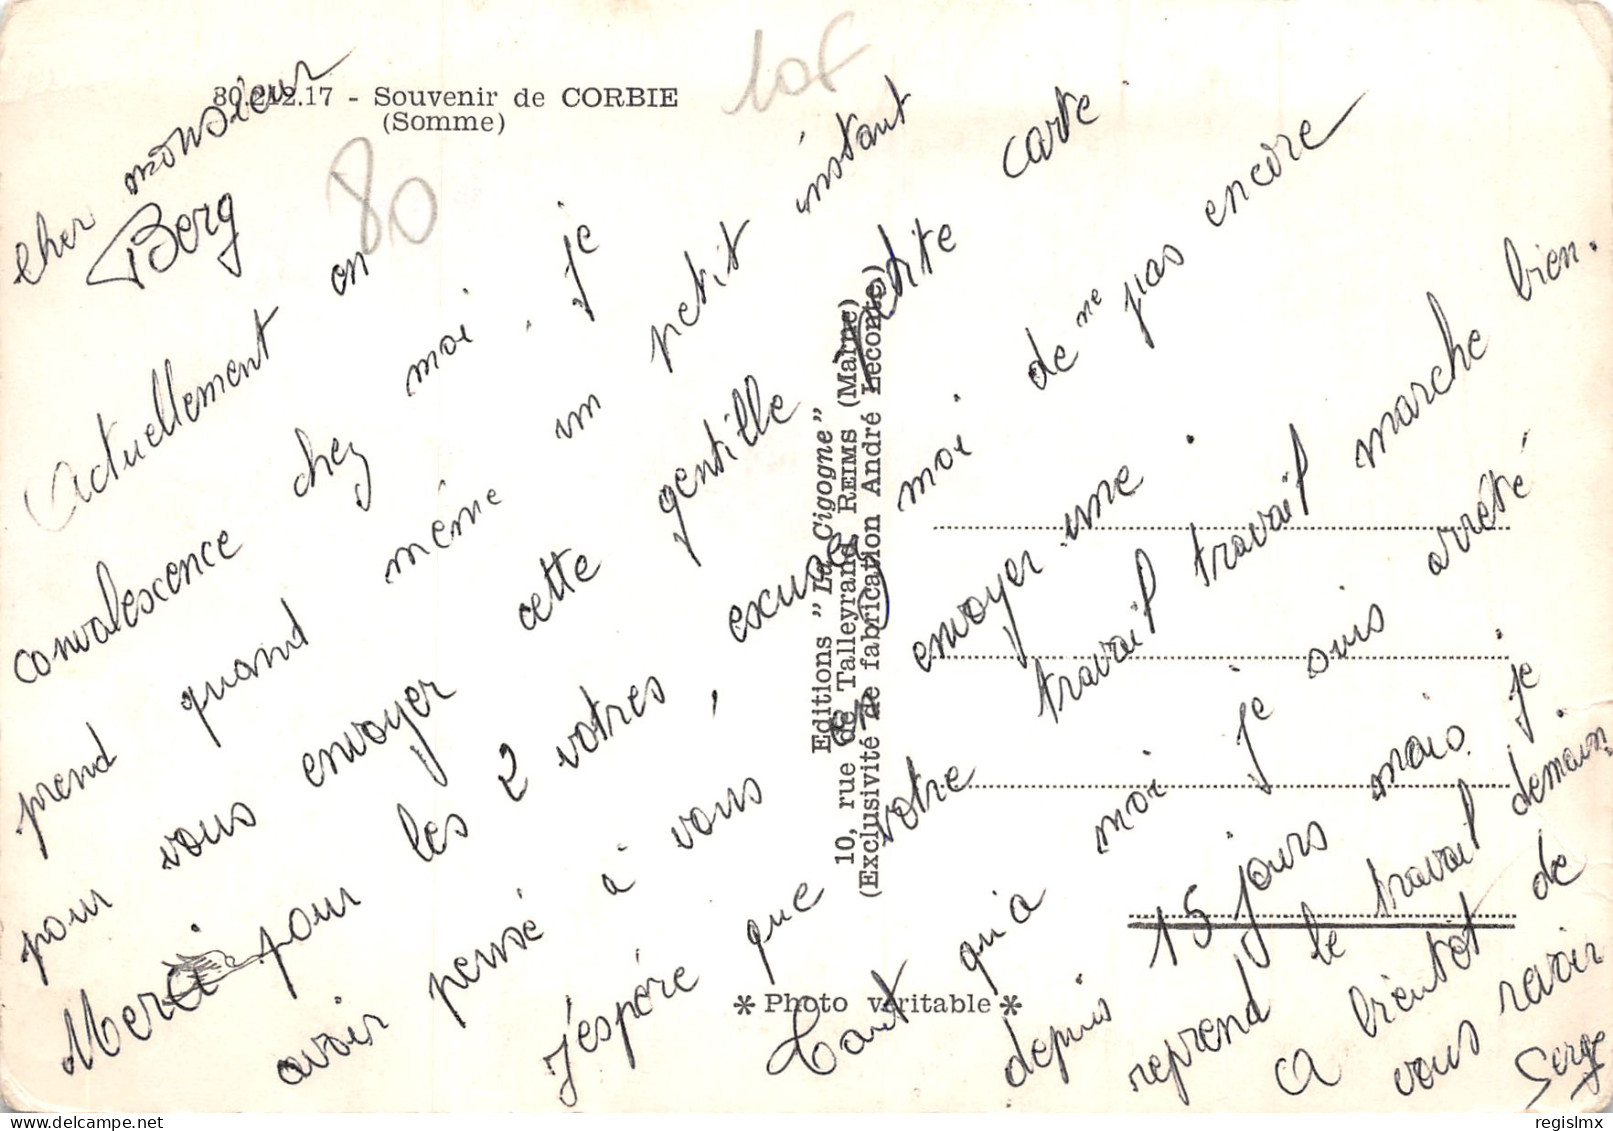 80.212.17 - Souvenir de CORBIE
(Somme)
lot
80
cher monsieur
Berg
Actuellement en
convalescence chez moi, je
prend quand même un petit instant
pour vous envoyer cette gentille petite carte
Merci pour les 2 votres, excusez moi de ne pas encore
avoir pensé à vous en envoyer une.
J'espére que votre travail travail travail marche bien.
Tant qu'a moi je suis arrété
depuis 15 jours mais je
reprend le travail demain.
A bientot de
vous revoir
Serge
Editions "La Cigogne"
10, rue de Talleyrand REIMS (Marne)
(Exclusivité de fabrication André Leconte)
* Photo véritable *
regislmx